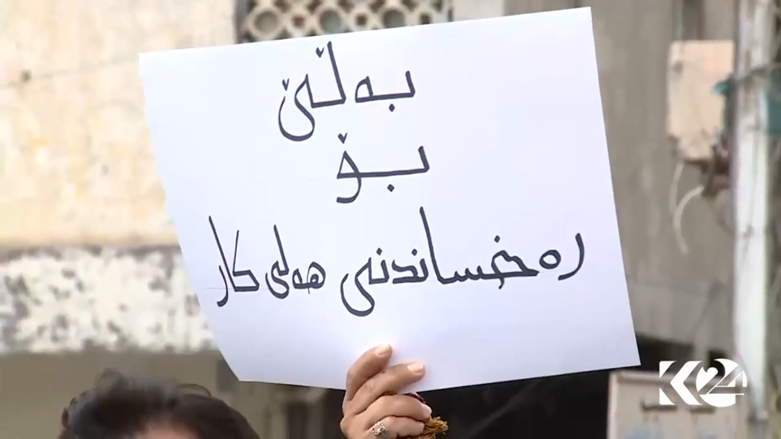 بەڵێ
بۆ
ڕەخساندنی هەلی کار
K24